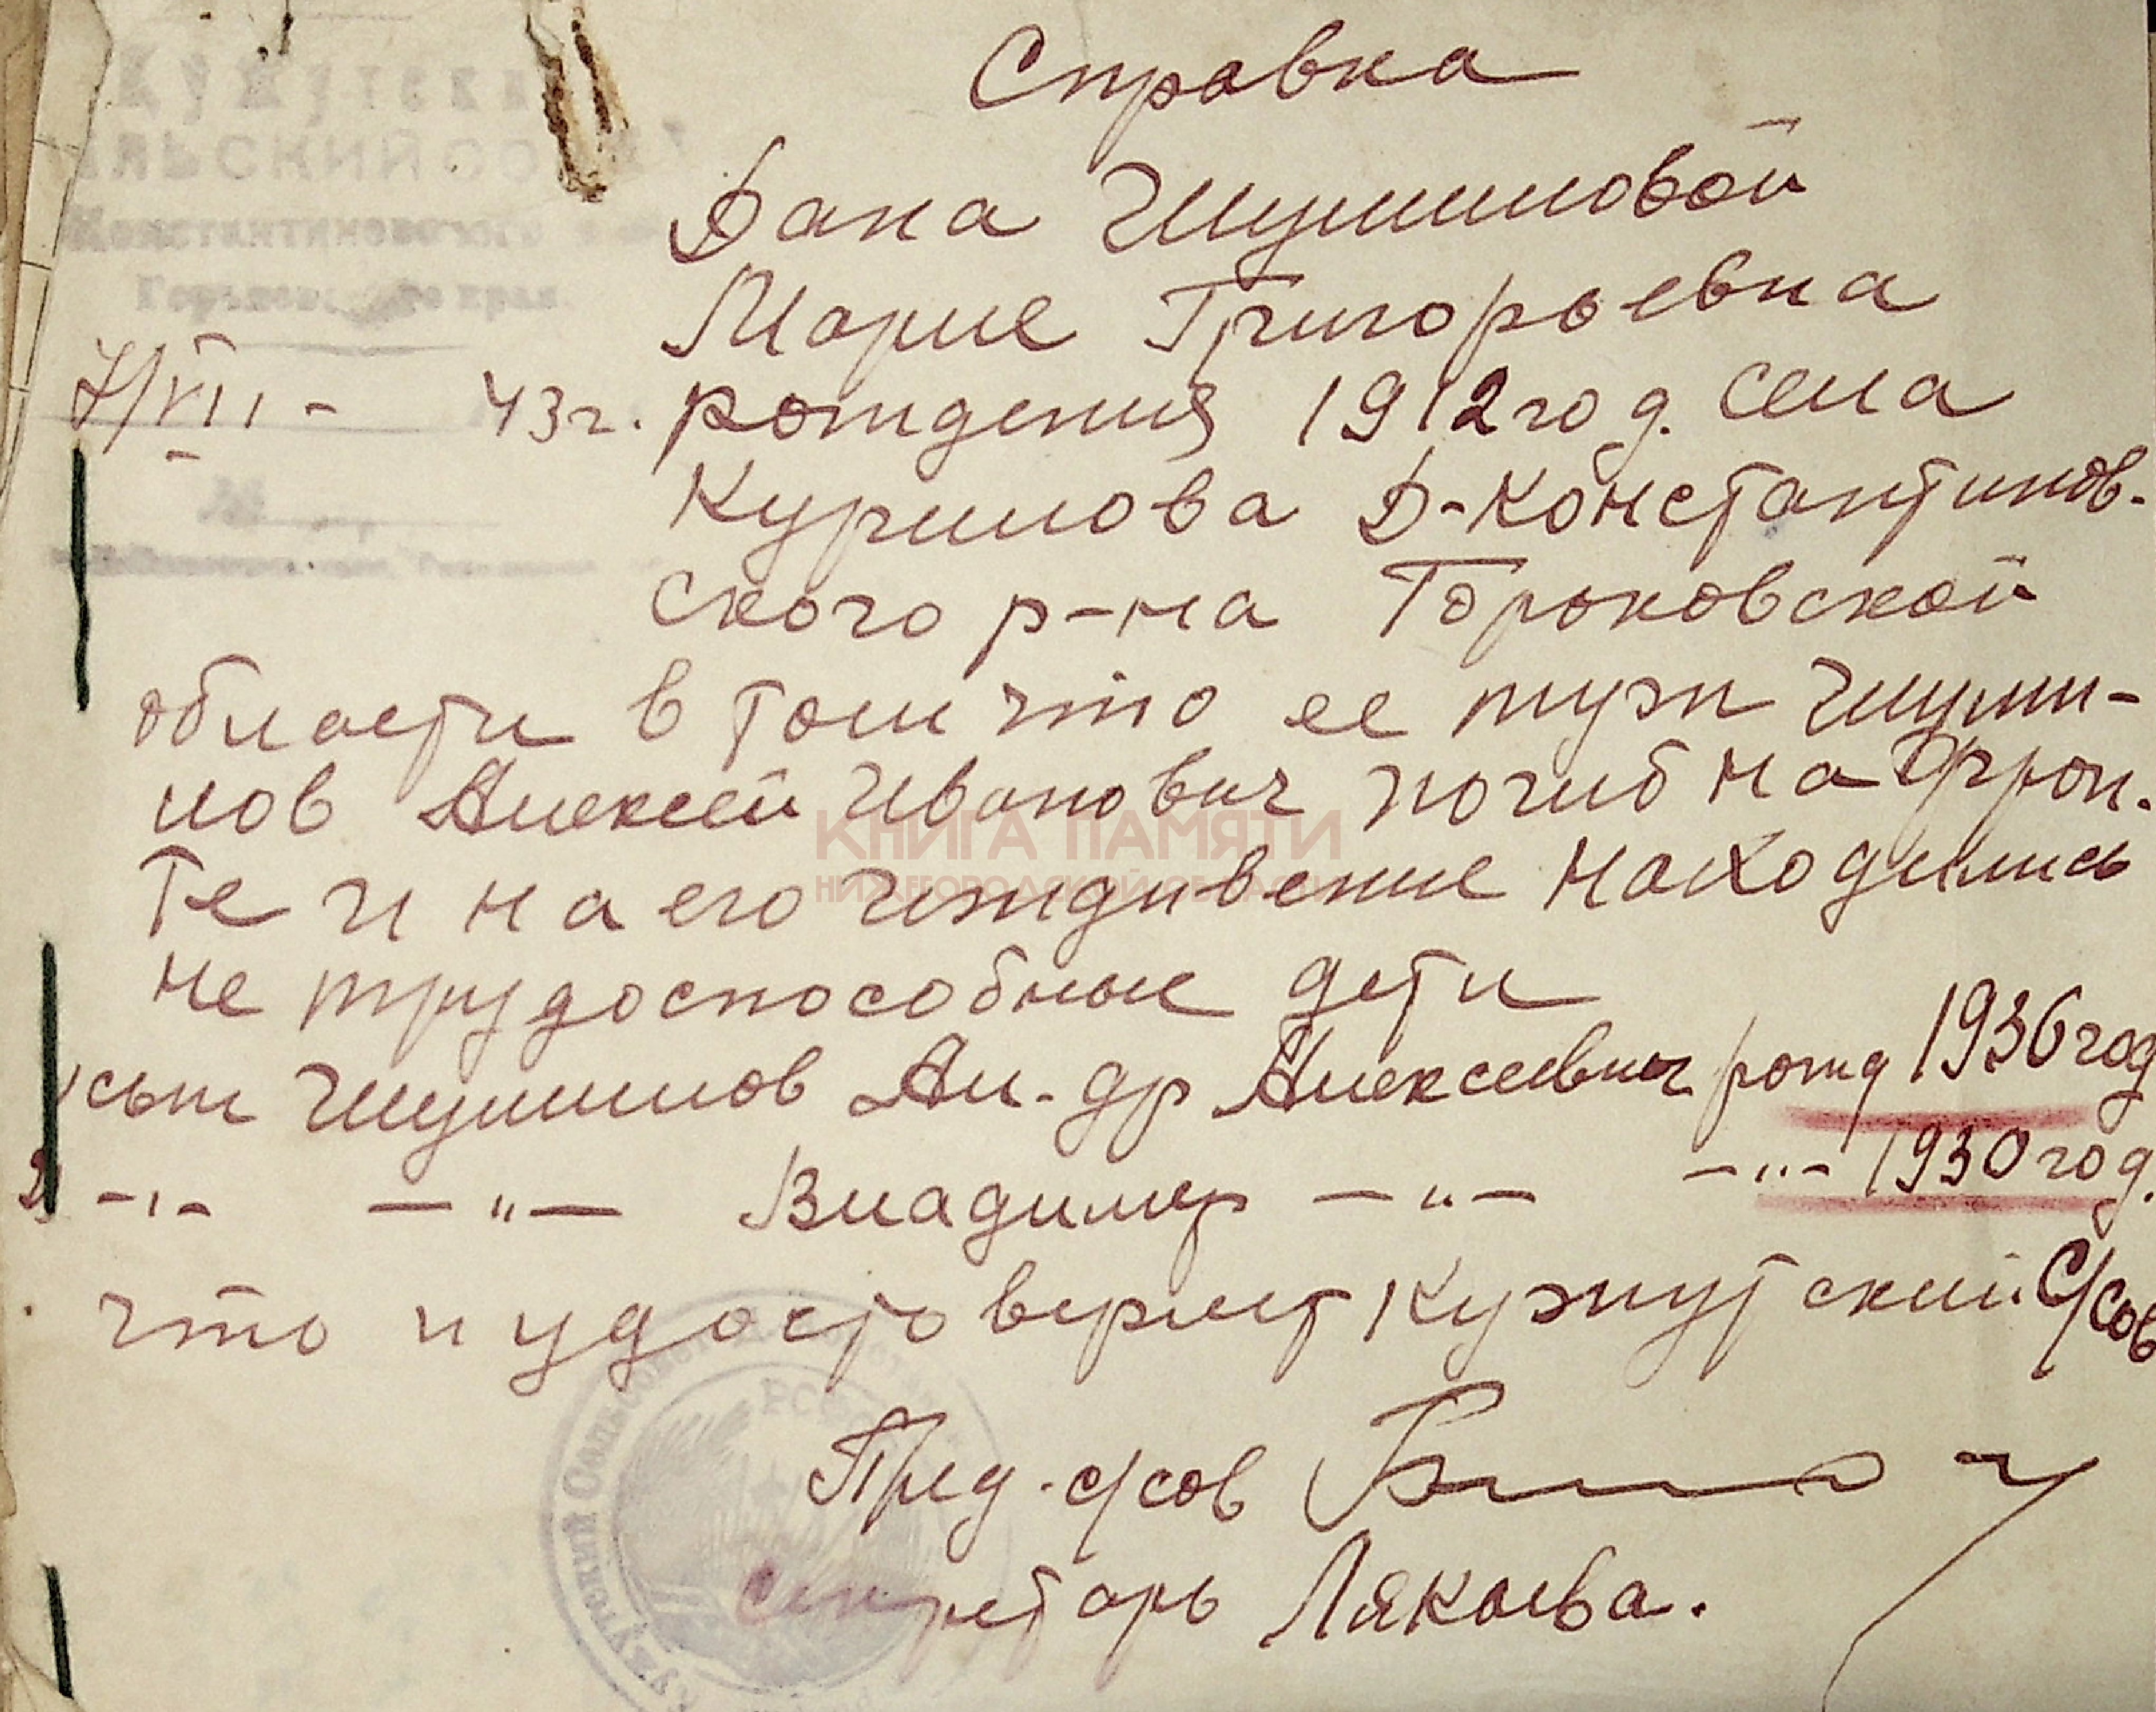 Кужутски
ЛЬСКИЙ СО
Константиновского
края
Справка
Дана Шумиловой
Марие Григорьевна
7/VII - 43г. рождения 1912 год. села
Курилова Д-Константинов-
ского р-на Горьковской
области в том что ее муж Шуми-
лов Алексей Иванович погиб на фрон.
те и на его иждивение находились
не трудоспособные дети
сын Шумилов Ал-др Алексеевич рожд 1936 год
2) -"- -"- Владимир -"- -"- 1930 год.
что и удостоверяет Кужутский С/сов
РСФСР
Кужутский
Пред. с/сов
секретарь Лякаева.
КНИГА ПАМЯТИ
НИЖЕГОРОДСКОЙ ОБЛАСТИ